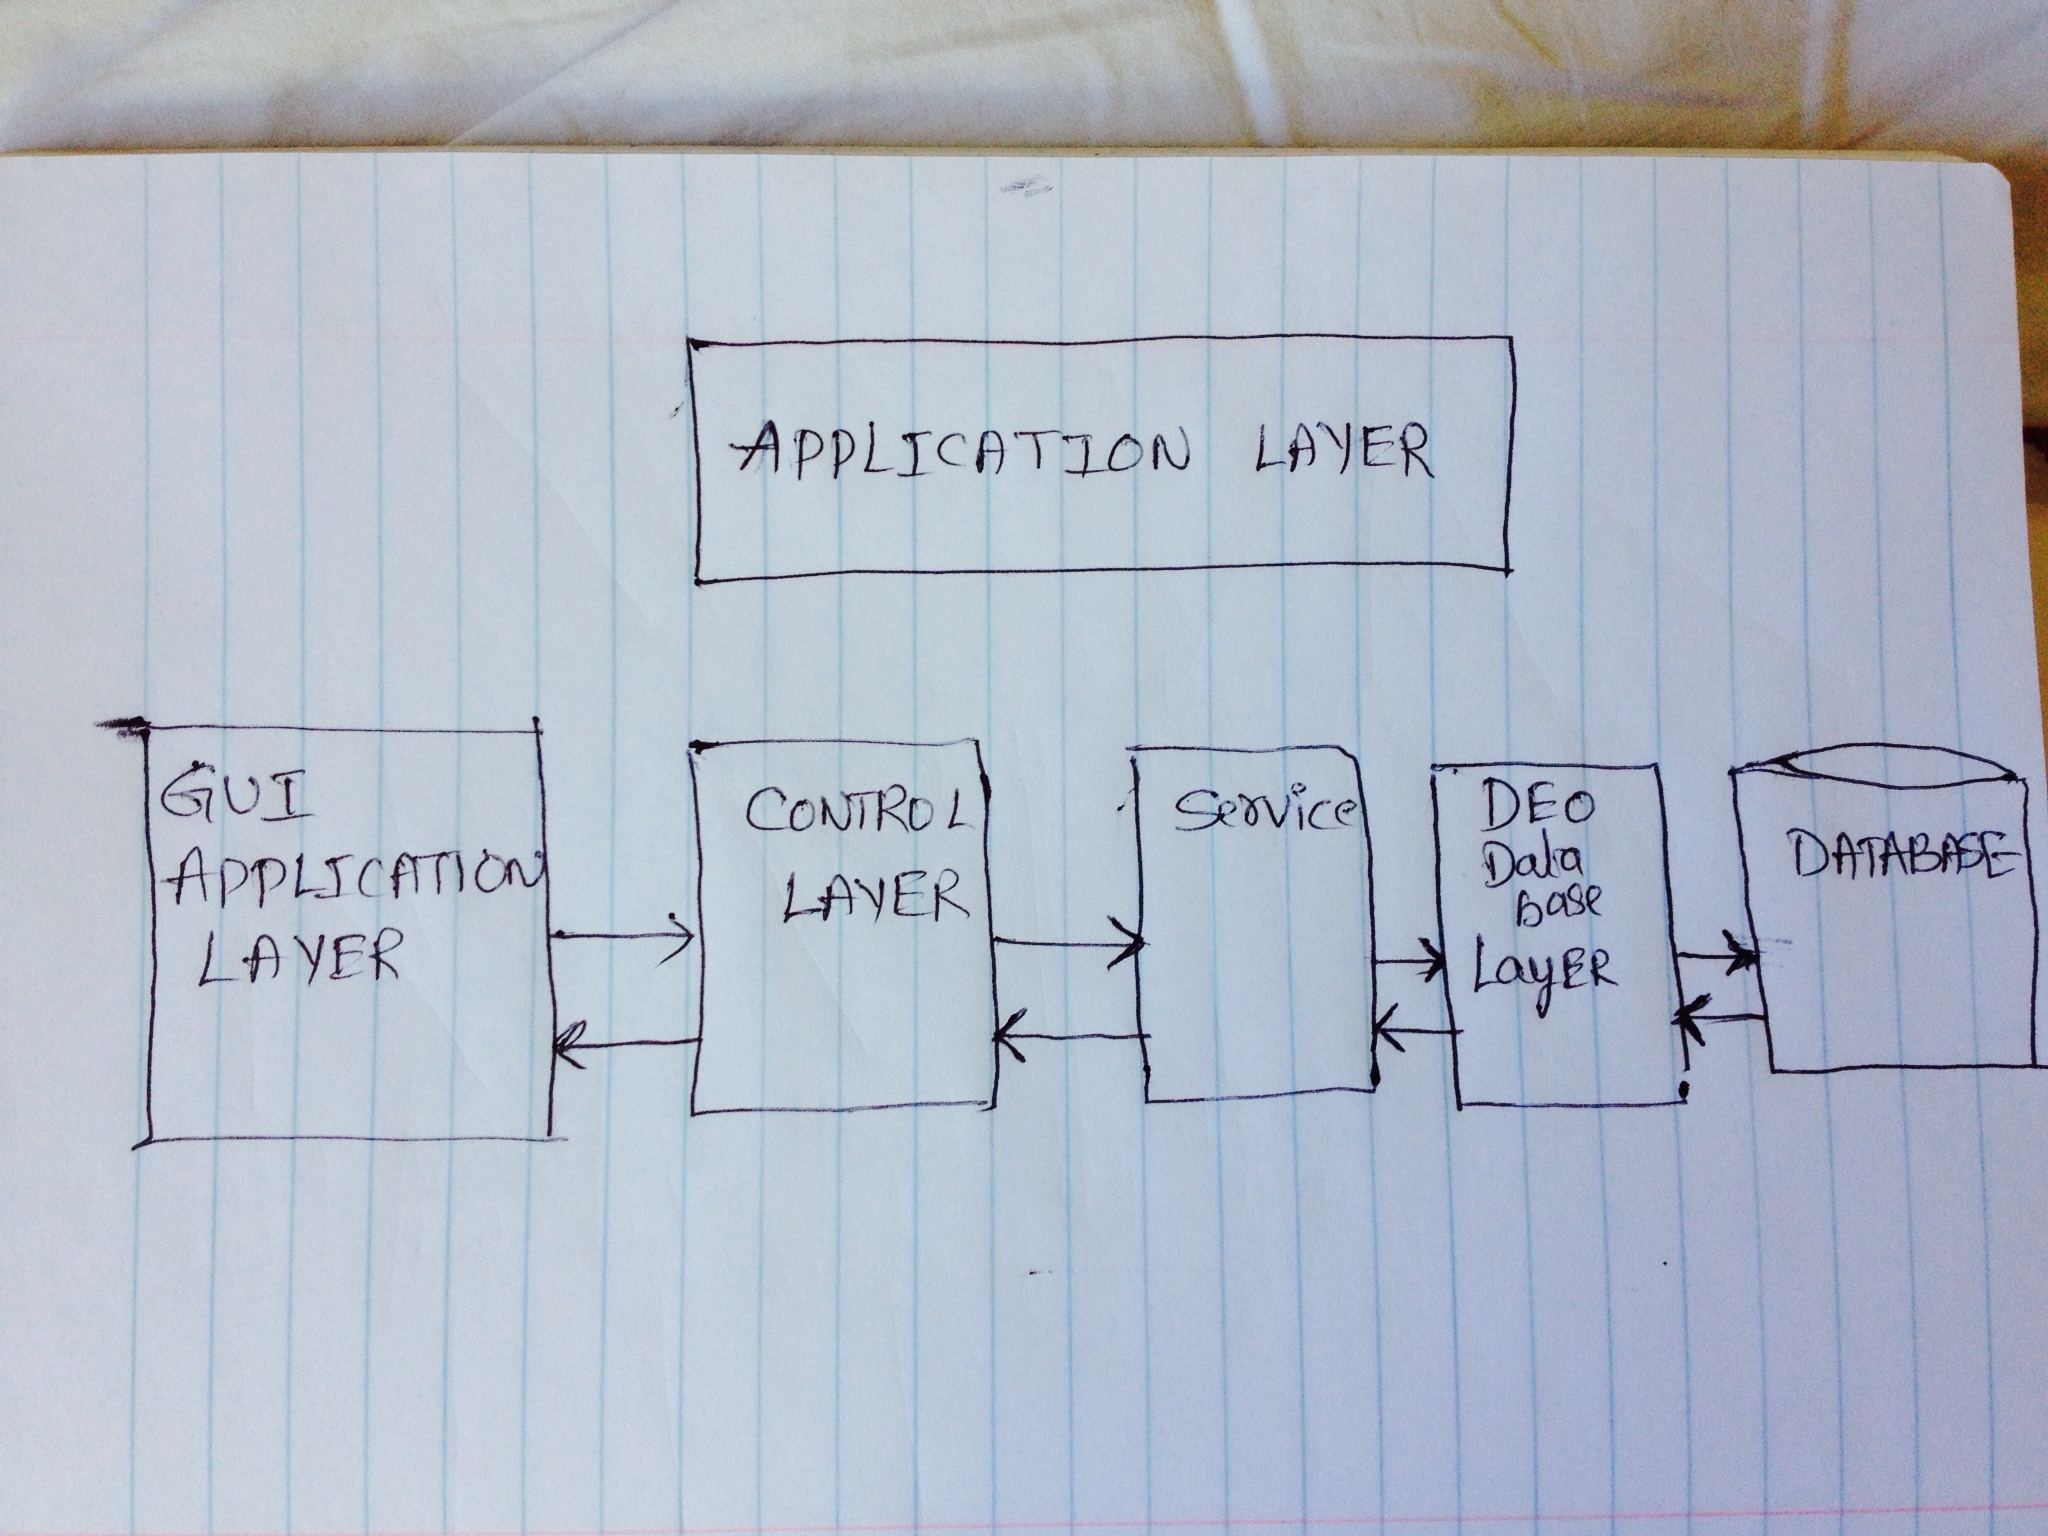 APPLICATION LAYER
GUI
APPLICATION
LAYER
CONTROL
LAYER
Service
DEO
Data
Base
LayER
DATABASE